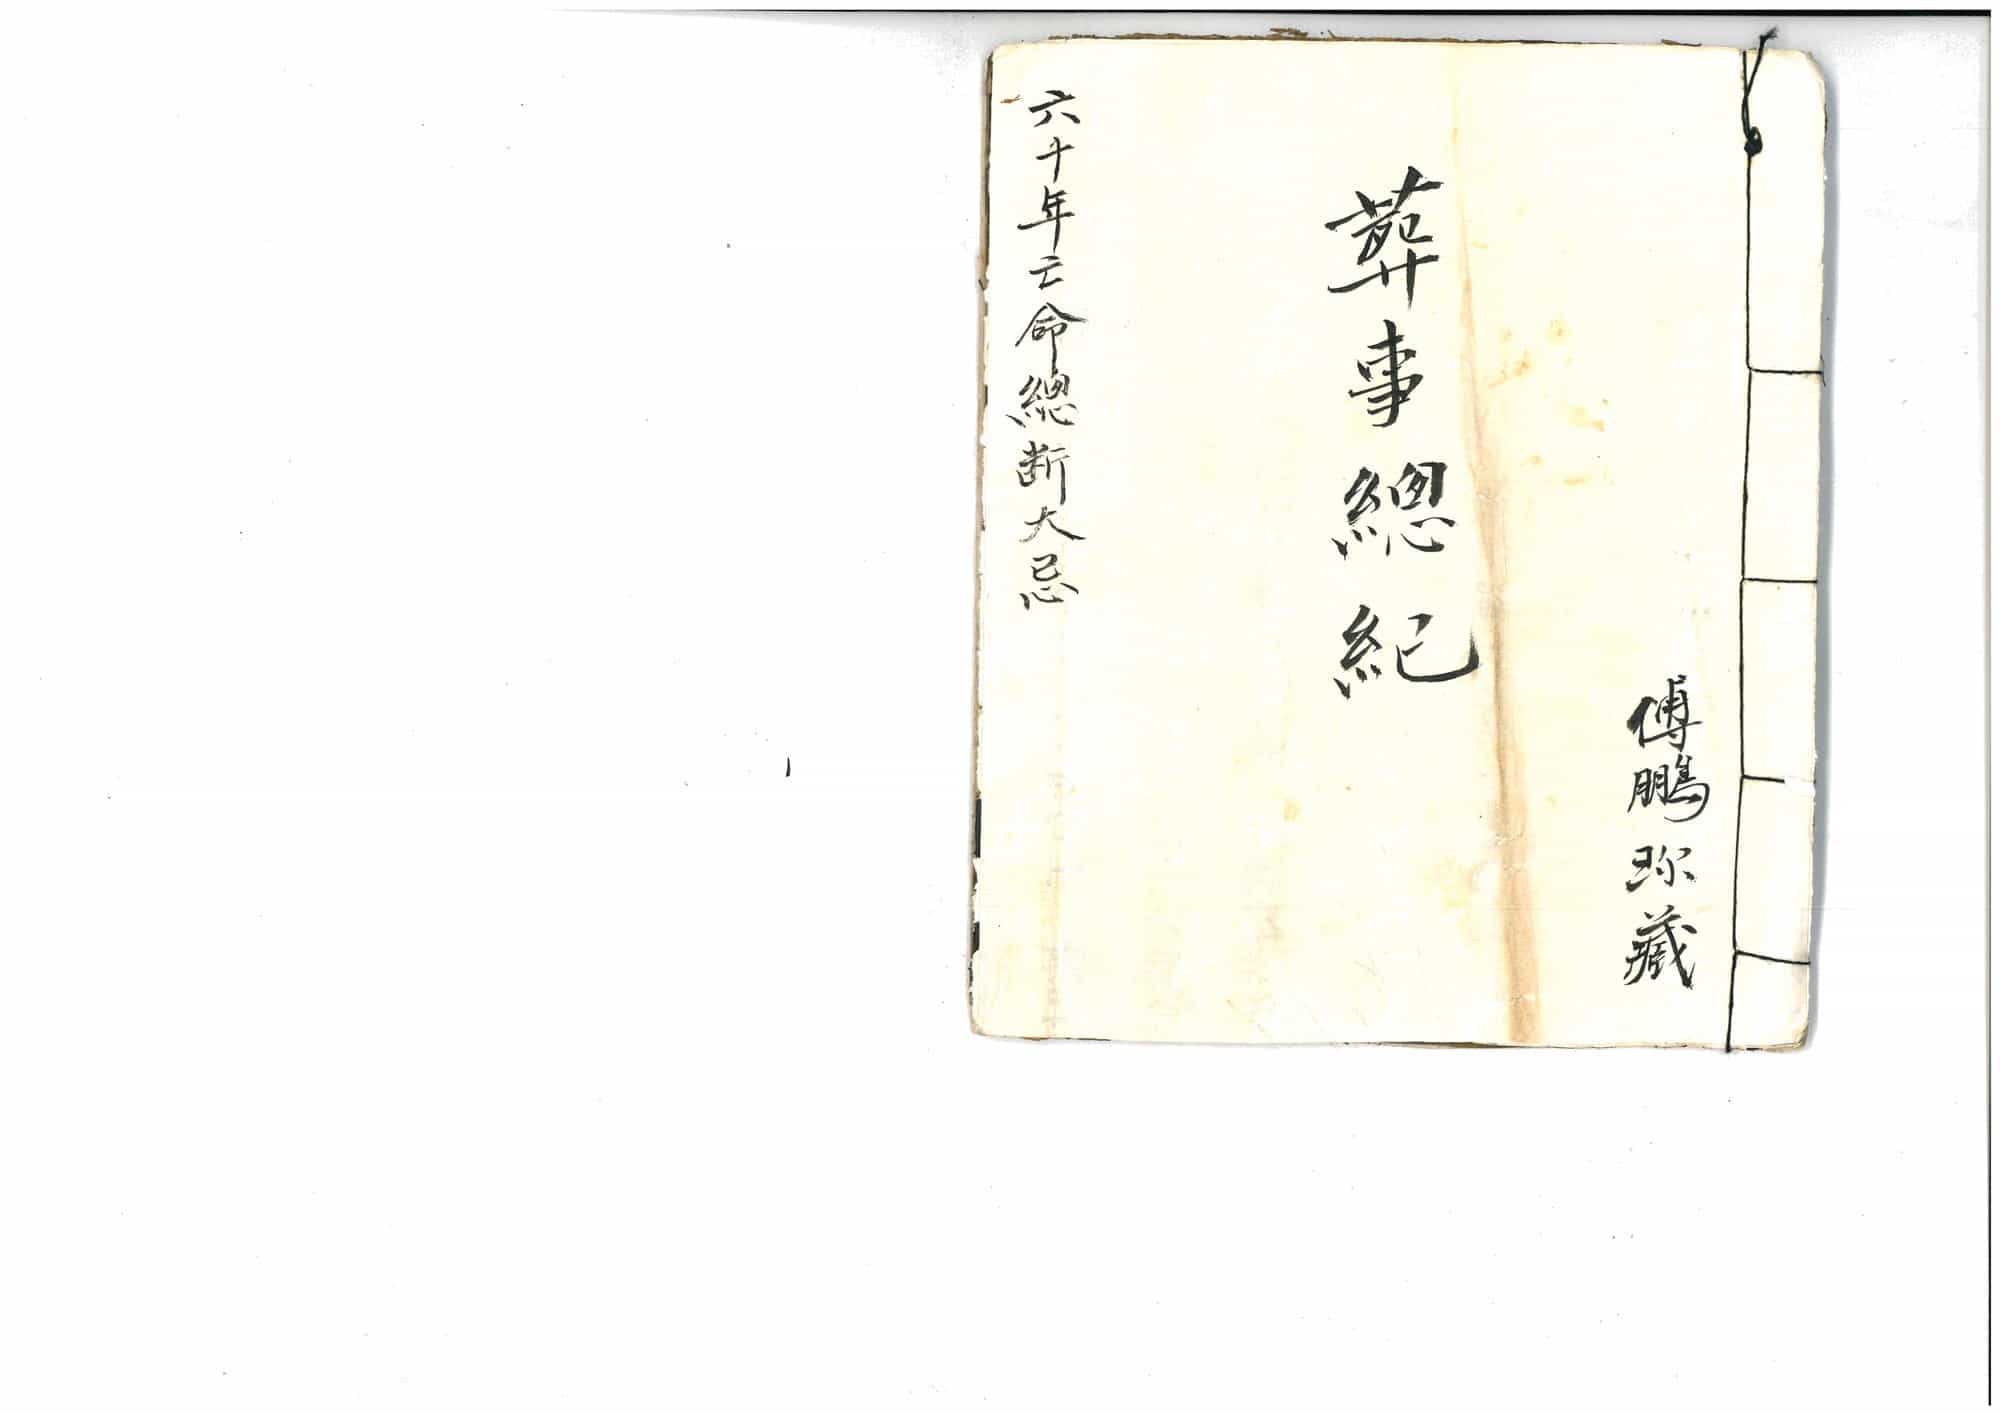 傅鵬珎藏
葬事總紀
六十年亡命總断大忌